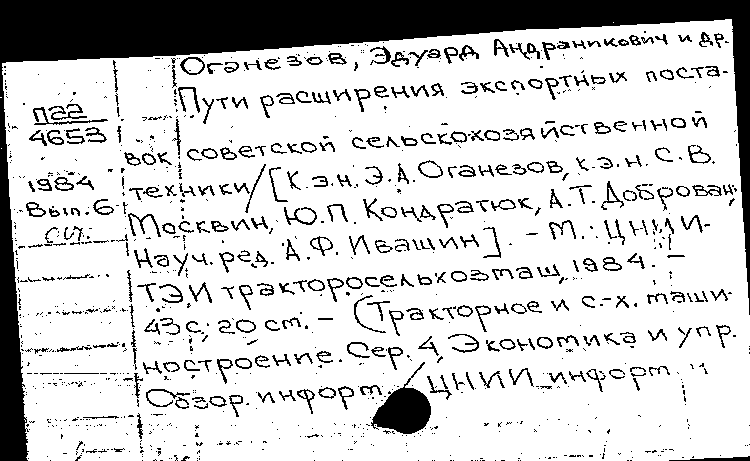 Оганезов, Эдуард Андраникович и др.
Пути расширения экспортных поста-
вок советской сельскохозяйственной
техники / [К.э.н. Э.А. Оганезов, к.э.н. С.В.
Москвин, Ю.П. Кондратюк, А.Т. Доброван;
Науч. ред. А.Ф. Иващин]. – М.: ЦНИИ-
ТЭИ тракторосельхозмаш, 1984. –
43 с.; 20 см. – (Тракторное и с.-х. маши-
ностроение. Сер. 4, Экономика и упр.
Обзор. информ. / ЦНИИ информ.
4653
1984
Вып. 6